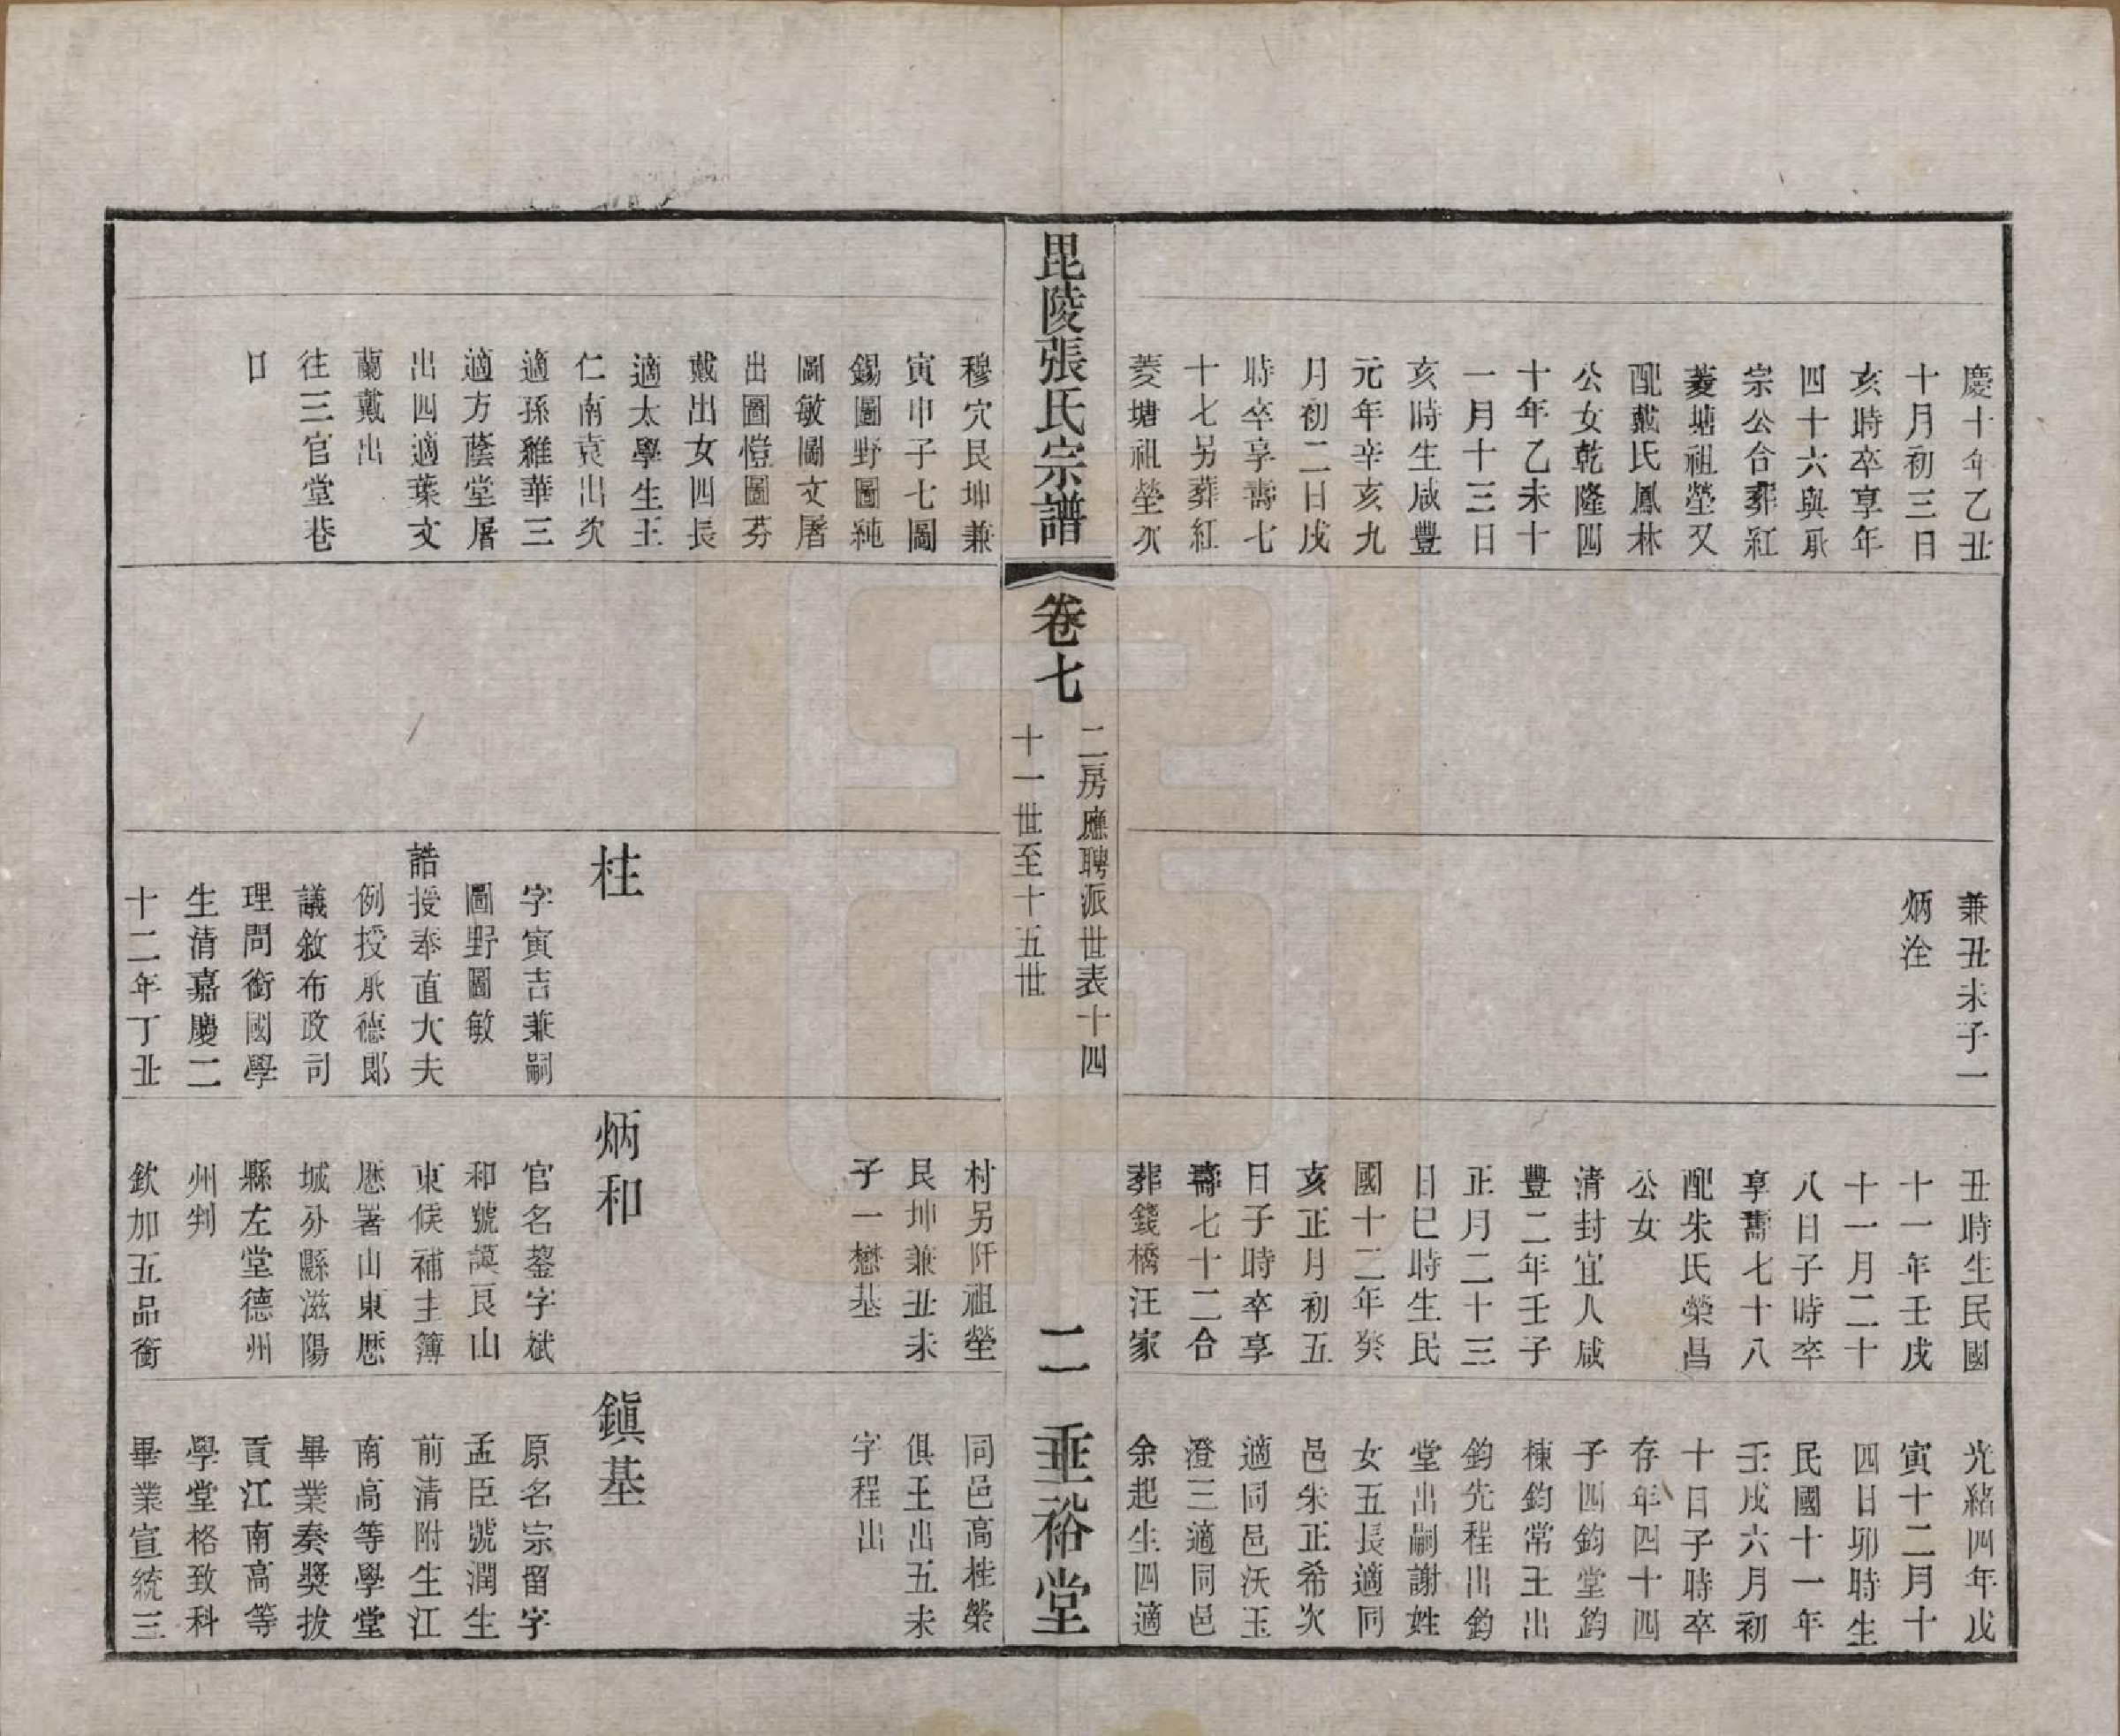 慶十年乙丑
十月初三日
亥時卒享年
四十六與承
宗公合葬紅
菱塘祖塋又
配戴氏鳳林
公女乾隆四
十年乙未十
一月十三日
亥時生咸豐
元年辛亥九
月初二日戌
時卒享壽七
十七另葬紅
菱塘祖塋次
兼丑未子一
炳洤
丑時生民國
十一年壬戌
十一月二十
八日子時卒
享壽七十八
配朱氏榮昌
公女
清封宜人咸
豐二年壬子
正月二十三
日巳時生民
國十二年癸
亥正月初五
日子時卒享
壽七十二合
葬錢橋汪家
光緒四年戊
寅十二月十
四日卯時生
民國十一年
壬戌六月初
十日子時卒
存年四十四
子四鈞堂鈞
棟鈞常王出
鈞先程出鈞
堂出嗣謝姓
女五長適同
邑朱正希次
適同邑沃玉
澄三適同邑
余起生四適
毘陵張氏宗譜
卷七
二房應聘派世表十四
十一世至十五世
二
垂裕堂
穆穴艮坤兼
寅申子七圖
錫圖圖野圖純
圖敏圖文屠
出圖愷圖芬
戴出女四長
適太學生王
仁南袁出次
適孫維華三
適方蔭堂屠
出四適葉文
蘭戴出
往三官堂巷
口
柱
字寅吉兼嗣
圖野圖敏
誥授奉直大夫
例授承德郎
議敘布政司
理問銜國學
生清嘉慶二
十二年丁丑
村另阡祖塋
艮坤兼丑未
子一懋基
炳和
官名鋆字斌
和號謨艮山
東候補主簿
歷署山東歷
城分縣滋陽
縣左堂德州
州判
欽加五品銜
同邑高桂榮
俱王出五未
字程出
鎭基
原名宗留字
孟臣號潤生
前清附生江
南高等學堂
畢業奏獎拔
貢江南高等
學堂格致科
畢業宣統三